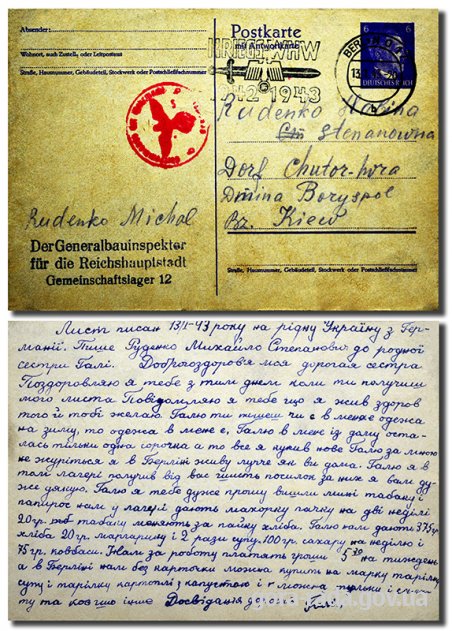 Absender:
Wohnort, auch Zustell- oder Leitpostamt
Straße, Hausnummer, Gebäudeteil, Stockwerk oder Postschließfachnummer
Postkarte
mit Antwortkarte
KRIEGS-WHW
1942 1943
BERLIN
6 6
DEUTSCHES REICH
Rudenko
Stepanowna
Dorf Chutor-hora
Boryspol
Bz. Kiew
Rudenko Michal
Der Generalbauinspektor
für die Reichshauptstadt
Gemeinschaftslager 12
Straße, Hausnummer, Gebäudeteil, Stockwerk oder Postschließfachnummer
Лист писан 13/II-43 року на рідну Україну з Гер-
манії. Пише Руденко Михайло Степанович до родної
сестри Галі. Доброго здоровя моя дорогая сестра
Поздоровляю я тебе з тим днем коли ти получиш
мого листа Повідомляю я тебе що я жив здоров
того й тобі желаю. Галю ти пишеш чи є в мене одежа
на зиму, то одежа в мене є, Галю в мене із дому оста-
лась тільки одна сорочка а то все я купив нове Галю за мною
не журіться я в Берліні живу лучче як ви дома. Галю я в
том лагері получив від вас шість посилок за них я вам ду-
же дякую. Галю я тебе дуже прошу вишли мині табаку і
папирос нам у лагері дають махорки пачку на дві неділі
20 гр. табаку меняють за пайку хліба. Галю нам дають 375 гр
хліба 20 гр. маргарину і 2 рази супу. 100 гр. сахару на неділю і
75 гр. ковбаси. Нам за роботу платять гроши 5 30 на тиждень
а в Берліні нам без карточки можна купить на марку тарілку
супу і тарілку картоплі з капустою і можна
ту та ще інше Досвідання дорога
gov.ua